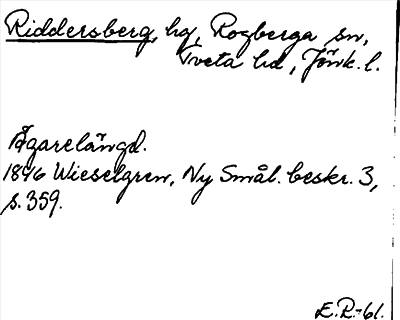 Riddersberg, hg, Rogberga sn,
Tveta hd, Jönk. l.
Ägarelängd.
1846 Wieselgren, Ny Smål. beskr. 3,
s. 359.
E.R.-61.